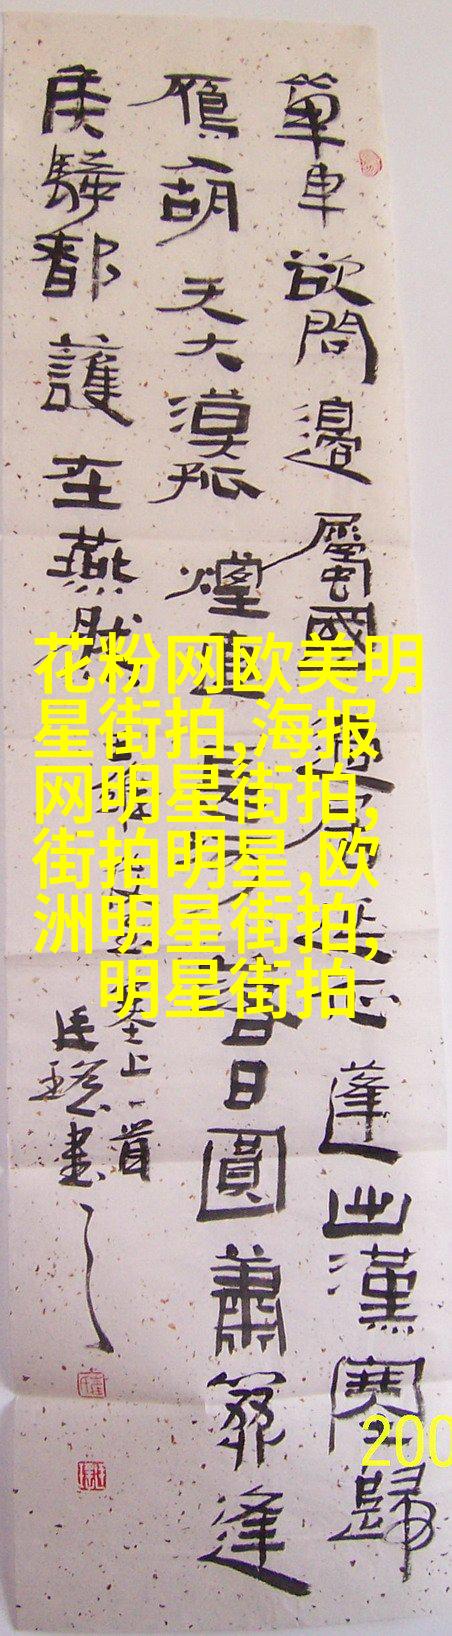 單車欲問邊屬國過居延蓬出漢塞歸
鴈入胡天大漠孤煙直長河落日圓蕭關逢
候騎都護在燕然
塞上一首
書
花粉网欧美明
星街拍,海报
网明星街拍,
街拍明星,欧
洲明星街拍,
明星街拍
200